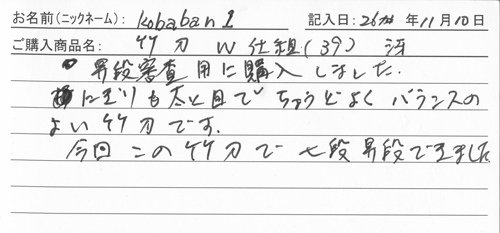 お名前(ニックネーム): kobaban1 記入日: 26 年 11月 10日
ご購入商品名: 竹刀 W仕組(39) 冴
昇段審査用に購入しました.
にぎりも太と目で ちょうどよく バランスの
よい竹刀です.
今回 この竹刀で 七段昇段できました